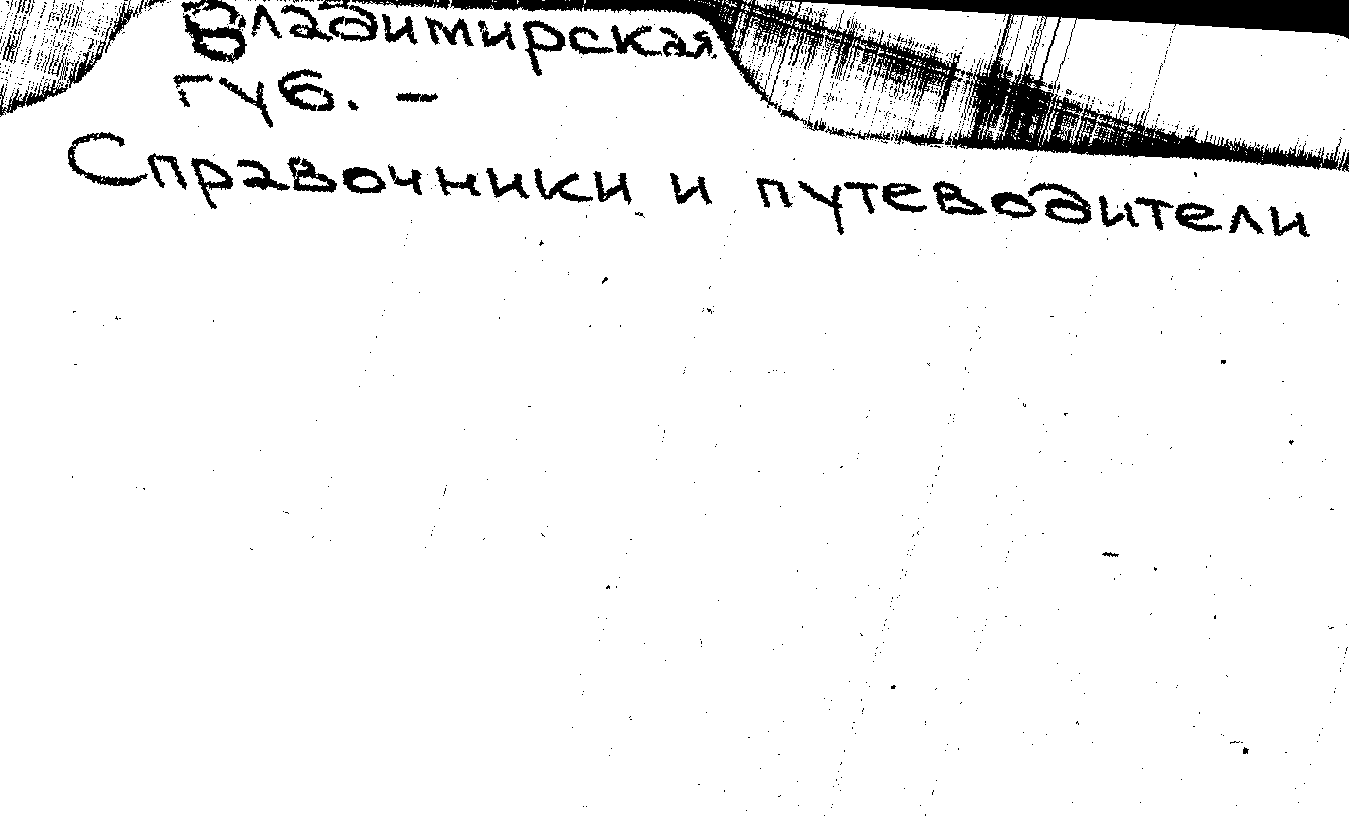 Владимирская
губ. –
Справочники и путеводители